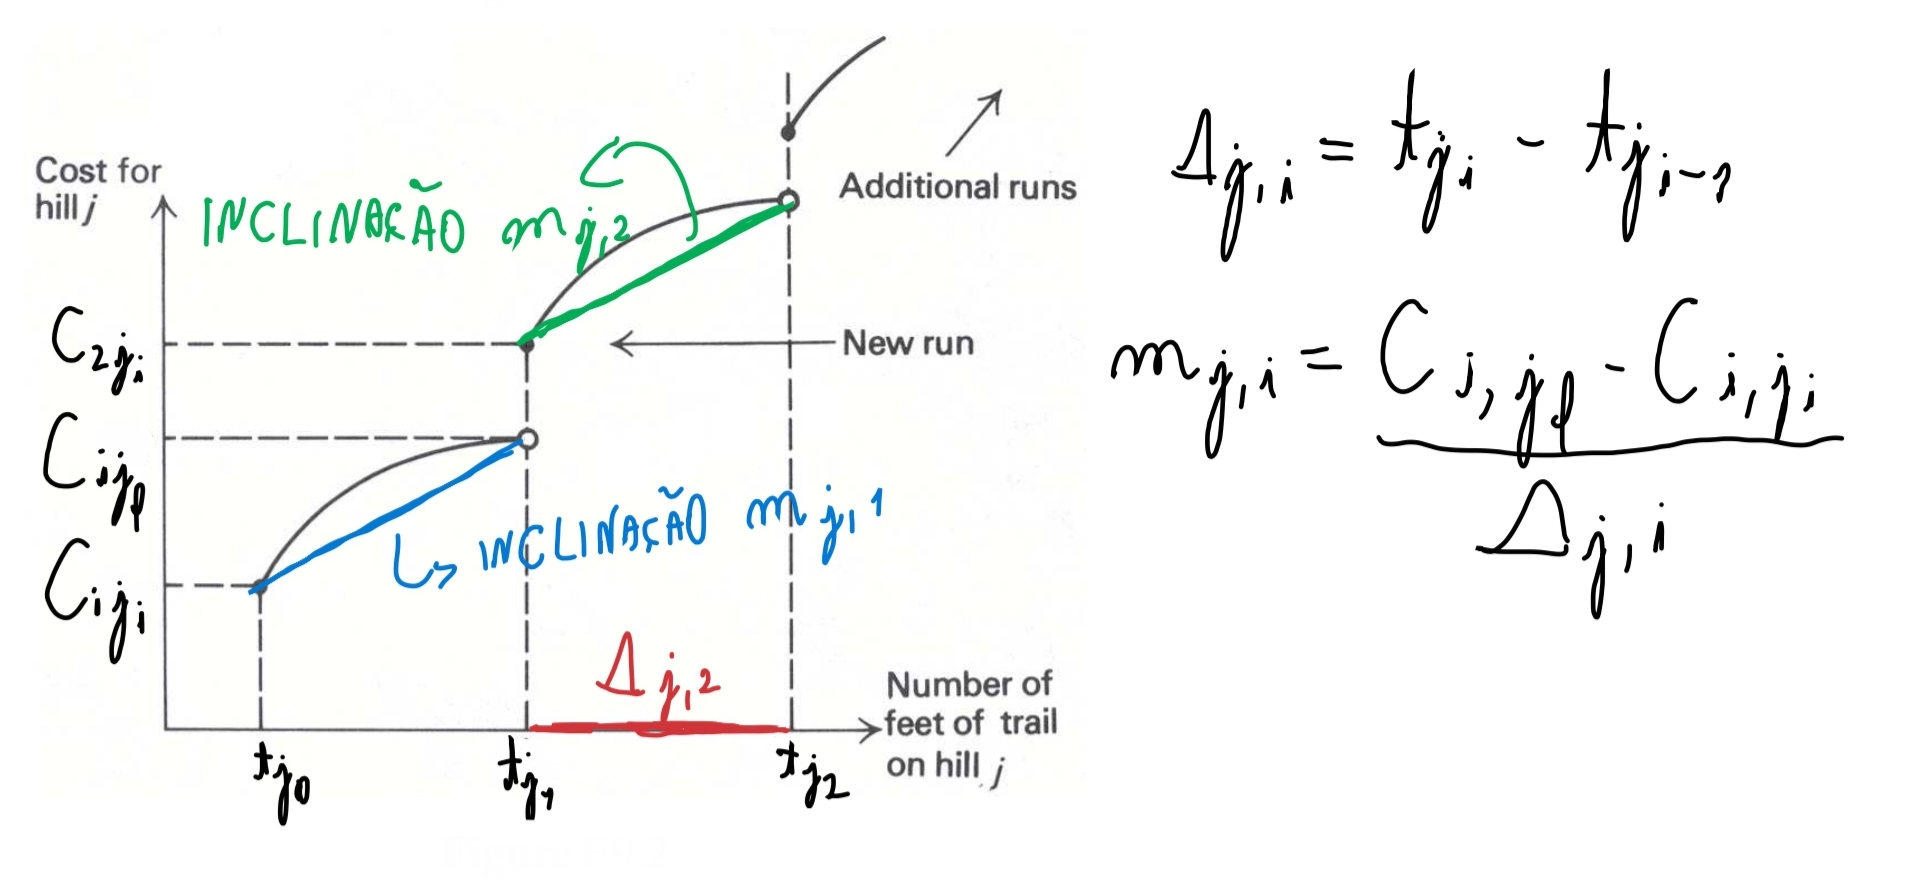 Cost for
hill j
INCLINAÇÃO m j,2
Additional runs
C 2ji
New run
C ijf
C iji
INCLINAÇÃO m j,1
Δ j,2
Number of
feet of trail
on hill j
t j0
t j1
t j2
Δ j,i = t ji - t ji-1
m j,i = C i,jf - C i,ji
Δ j,i